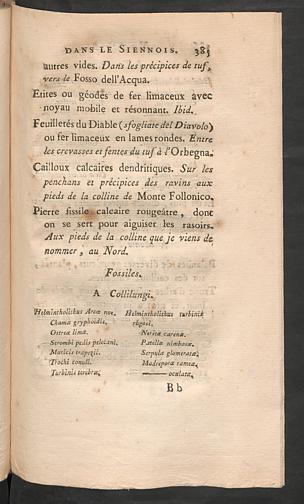 DANS LE SIENNOIS. 385
autres vides. Dans les précipices de tuf,
vers le Fosso dell'Acqua.
Etites ou géodes de fer limaceux avec
noyau mobile et résonnant. Ibid.
Feuilletés du Diable (sfogliate del Diavolo)
ou fer limaceux en lames rondes. Entre
les crevasses et fentes du tuf à l'Orbegna.
Cailloux calcaires dendritiques. Sur les
penchans et précipices des ravins aux
pieds de la colline de Monte Follonico.
Pierre fissile calcaire rougeâtre, dont
on se sert pour aiguiser les rasoirs.
Aux pieds de la colline que je viens de
nommer, au Nord.
Fossiles.
A Collilungi.
Helmintholithus Arcæ noe.
Chamæ gryphoidis.
Ostreæ limæ.
Strombi pedis pelecani.
Muricis trapezii.
Trochi conuli.
Turbinis terebræ.
Helmintholithus turbinis
rugosi.
Neritæ carenæ.
Patellæ nimbosæ.
Serpulæ glomeratæ.
Madreporæ rameæ.
——— oculatæ.
B b